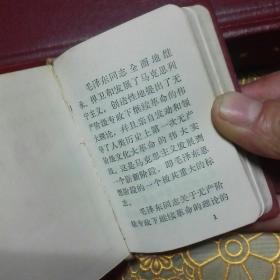 毛泽东同志全面地继
承、捍卫和发展了马克思列
宁主义，创造性地提出了无
产阶级专政下继续革命的伟
大理论，并且亲自发动和领
导了人类历史上第一次无产
阶级文化大革命的伟大实
践，这是马克思主义发展到
一个崭新阶段，即毛泽东思
想阶段的一个极其重大的标
志。
毛泽东同志关于无产阶
级专政下继续革命的理论的
1